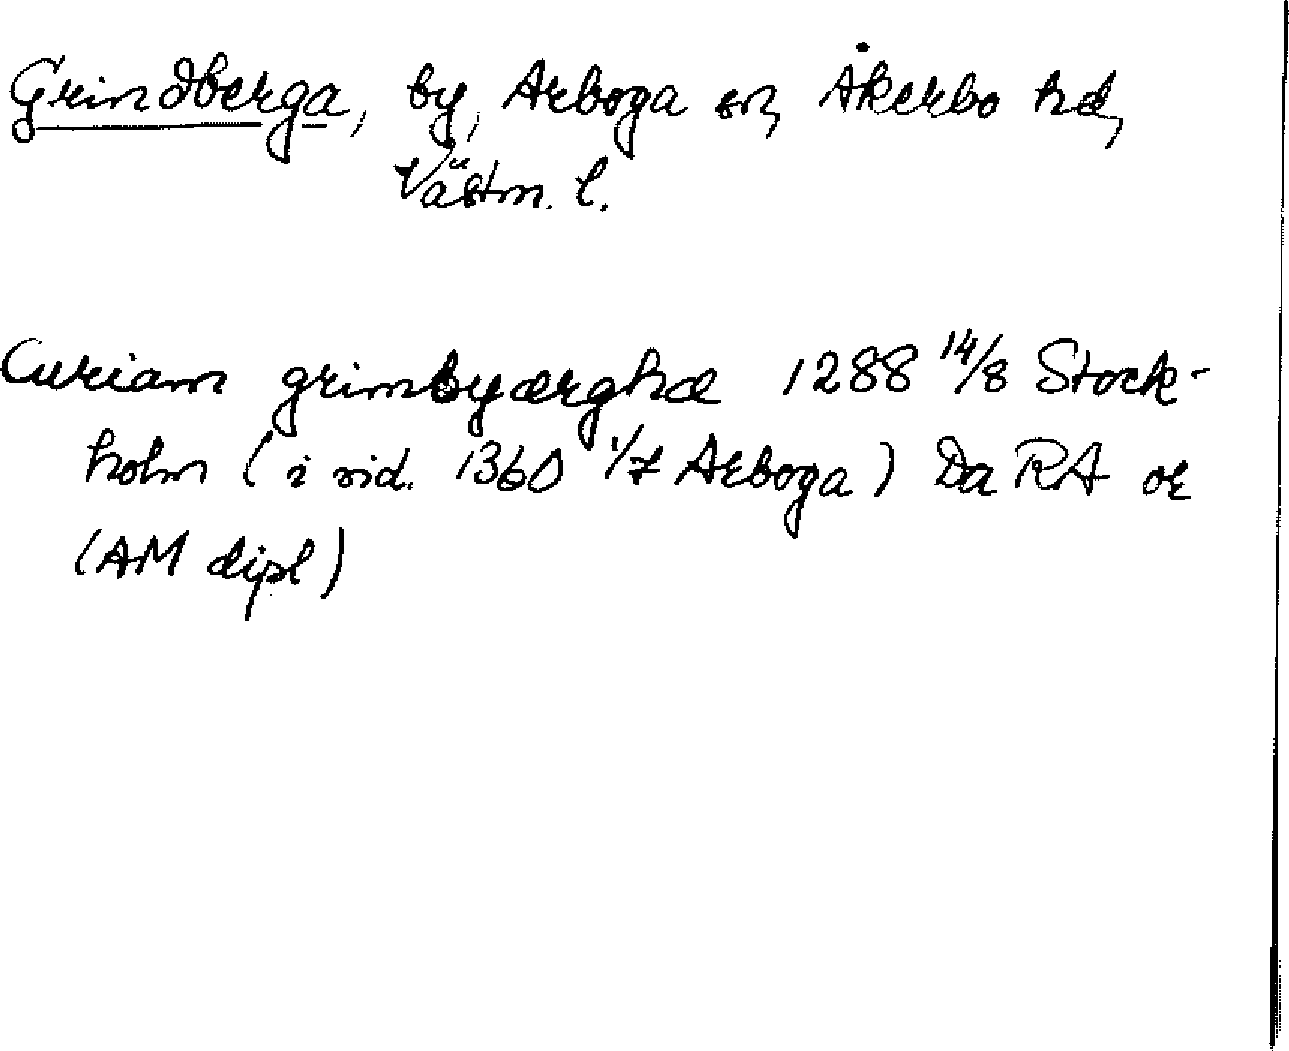 Grindberga, by, Arboga sn, Åkerbo hd,
Västm. l.
Curiam grimbyærghæ 1288 14/8 Stock-
holm (i vid. 1360 1/7 Arboga) Da RA or
(AM dipl)